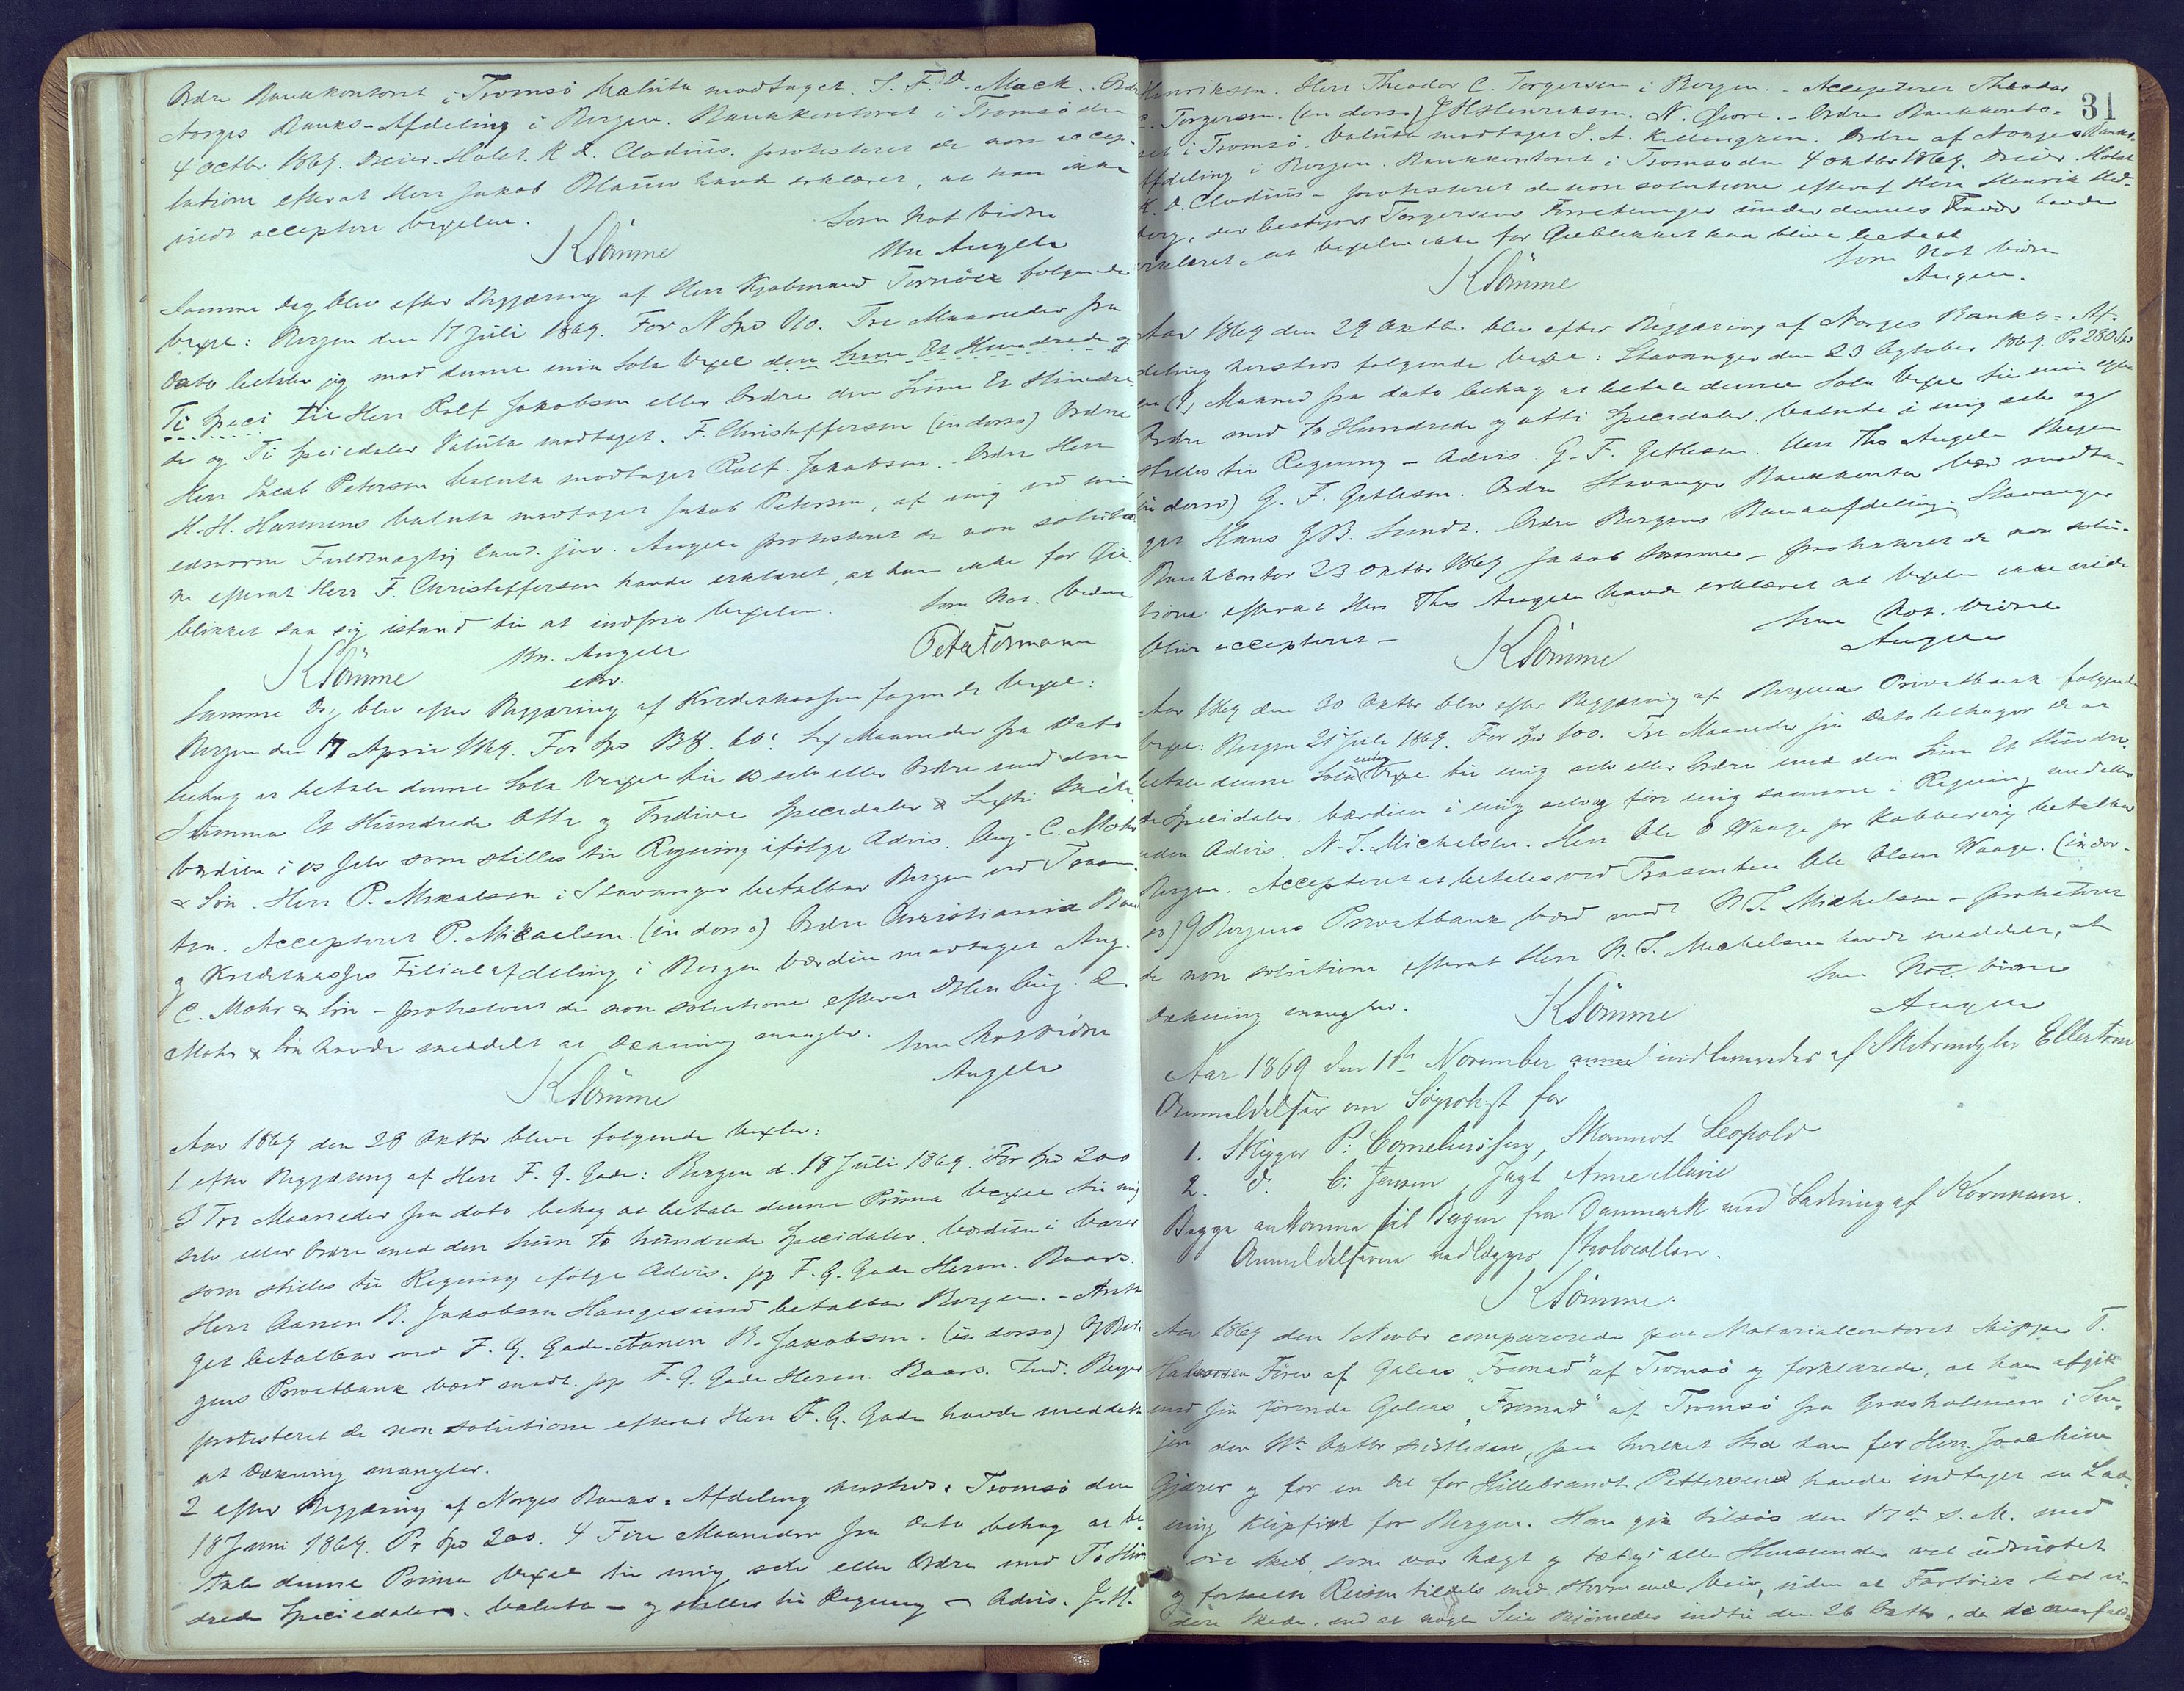 Ordre Bankkontoret i Tromsö Valuta modtaget. J. F. D. Mack. Ordre
Norges Banks-Afdeling i Bergen. Bankkontoret i Tromsö den
4 octbr 1869. Dreier. Holst. K. D. Clodius. protesteret de non accep-
tatione efterat Herr Jakob havde erklæret, at han ikke
acceptere vexelen.
Som Not vidne
Klömme
Angell
Samme Dag blev efter Begjæring af Herr Kjøbmand følgende
Vexel: Bergen den 17 Juli 1869. For N Spd 110. Tre Maaneder fra
Dato betaler jeg mod denne min Sola Vexel den Sum Et Hundrede og
Ti Speci til Herr Rolf Jakobsen eller Ordre den Sum Et Hundre-
de og Ti Speciedaler Valuta modtaget. F. Christoffersen (in dorso) Ordre
Herr Jacob Petersen Valuta modtaget Rolf Jakobsen. Ordre Herr
H. H. Harmens Valuta modtaget Jakob Petersen, af mig ved min
edsvorne Fuldmægtig Cand. jur. Angell protesteret de non solutio-
ne efterat Herr F. Christoffersen havde erklæret, at han ikke for Øie-
blikket saa sig istand til at indfrie Vexelen.
Som Not. Vidne
Klömme
Angell
Peter Formann
Samme Dag blev efter Begjæring af Kreditkassen følgende Vexel:
Bergen den 17 April 1869. For Spd 138. 60s Sex Maaneder fra Dato
behag at betale denne Sola Vexel til os selv eller Ordre med den
Summa Et Hundrede Otte og Tredive Speciedaler & Sexti Skill.
Værdien i os selv som stilles til Regning ifølge Advis. Aug. C. Mohr
& Søn. Herr P. Mikalsen i Stavanger betalbar Bergen ved Trasen-
ten. Accepteret P. Mikaelsen. (in dorso) Ordre Christiania Bank
og Kreditkasses Filialafdeling i Bergen Værdien modtaget Aug.
C. Mohr & Søn - protesteret de non solutione efterat Herr Aug. C.
Mohr & Søn havde meddelt at Dækning mangler.
Som Not Vidne
Klömme
Angell
Aar 1869 den 28 Oktbr bleve følgende Vexler:
1 efter Begjæring af Herr F. G. Gade: Bergen d. 18 Juli 1869. For Spd 200
3 Tre Maaneder fra dato behag at betale denne Prima Vexel til mig
selv eller Ordre med den Sum to hundrede Speciedaler. Værdien i
som stilles til Regning ifølge Advis. pp F. G. Gade Herm. Baars.
Herr Aanen B. Jakobsen Haugesund betalbar Bergen. - Anta-
get betalbar ved F. G. Gade. Aanen B. Jakobsen. (in dorso) Ber-
gens Privatbank Værd modt. pp F. G. Gade Herm. Baars.
protesteret de non solutione efterat Herr F. G. Gade havde meddelt
at Dækning mangler.
2 efter Begjæring af Norges Banks-Afdeling hersteds: Tromsö den
18 Juni 1869. Pr Spd 200. 4 Fire Maaneder fra Dato behag at be-
tale denne Prima Vexel til mig selv eller Ordre med To Hun-
drede Speciedaler. Valuta - og stilles til Regning - Advis. J. H.
31
Henriksen. Herr Theodor C. Torgersen i Bergen. - Accepteret Theodor
C. Torgersen. (in dorso) J H Henriksen. N. Giæver. - Ordre Bankkonto-
ret i Tromsö. Valuta modtaget J. A. Killengren. Ordre af Norges Banks-
Afdeling i Bergen. Bankkontoret i Tromsö den 4 oktbr 1869. Dreier Holst
K. D. Clodius - protesteret de non solutione efterat Herr Henrik Hed-
berg, der bestyrer Torgersens Forretninger under dennes havde
erklæret, at Vexelen ikke for Øieblikket kan blive betalt
Som Not Vidne
Klömme
Angell.
Aar 1869 den 29 Oktbr blev efter Begjæring af Norges Banks-Af-
deling hersteds følgende Vexel: Stavanger den 23 Oktober 1869. Pr 280 Spd
en (1) Maaned fra dato behag at betale denne Sola Vexel til min egen
Ordre med to Hundrede og otti Speciedaler, Valuta i mig selv og
stilles til Regning - Advis. G. F. Gitlesen. Herr Ths Angell Bergen
(in dorso) G. F. Gitlesen. Ordre Stavanger Bankkontor Værd modta-
get Hans G B. Sundt. Ordre Bergens Bankafdeling. Stavanger
Bankkontor 23 Oktbr 1869 Jakob - protesteret de non solu-
tione efterat Herr Ths Angell havde erklæret at Vexelen ikke vilde
blive accepteret -
Som Not. Vidne
Klömme
Angell
Aar 1869 den 30 Oktbr blev efter Begjæring af Bergens Privatbank følgende
Vexel: Bergen 21 Juli 1869. For Spd 100. Tre Maaneder fra Dato behager De at
betale denne Sola Vexel til mig selv eller Ordre med den Sum Et Hundre-
de Speciedaler. Værdien i mig selv og før mig samme i Regning med eller
uden Advis. N. J. Michelsen. Herr Ole O Waage pr Kobbervig betalbar
Bergen. Accepteret at betales ved Trasenten Ole Olsen Waage. (in dor-
so) Bergens Privatbank Værd modt N. J. Michelsen - protesteret
de non solutione efterat Herr N. J. Michelsen havde meddelt, at
Dækning mangler.
Som Not. Vidne
Klömme
Angell
Aar 1869 den 1ste November indleveredes af Skibsmægler Ellertsen
Anmeldelser om Söprotest for
1. Skipper P. Corneliussen, Skonnert Leopold
2. D. C. Jensen, Jagt Anne Marie
Begge ankomne til Bergen fra Danmark med Ladning af Kornvarer.
Anmeldelserne vedlægges Protocollen.
Klömme.
Aar 1869 den 1 Novbr comparerede paa Notarialcontoret Skipper T.
Halvorsen Förer af Galeas "Fremad" af Tromsö og forklarede, at han afgik
med sin førende Galeas "Fremad" af Tromsö fra Græsholmen i Sen-
jen den Oktbr sidstleden, paa hvilket Sted han for Herr Joachim
Gjæver og for en Del for Hillebrandt Pettersen havde indtaget en Lad-
ning Klipfisk for Bergen. Han gik tilsøs den 17de s. M. med
sit Skib, som var tægt og tæt og i alle Henseender vel udrustet
og fortsatte Reisen tildels med stormende Veir, uden at Fartøiet led vi-
dere Skade, end at nogle Seil indtil den 26 Oktbr, da de overfaldt